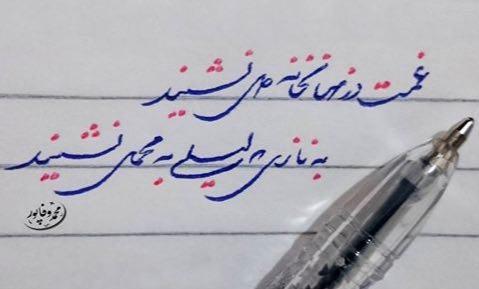 غمت در نهانخانه دل نشیند
به نازی که لیلی به محمل نشیند
محمد وفاپور